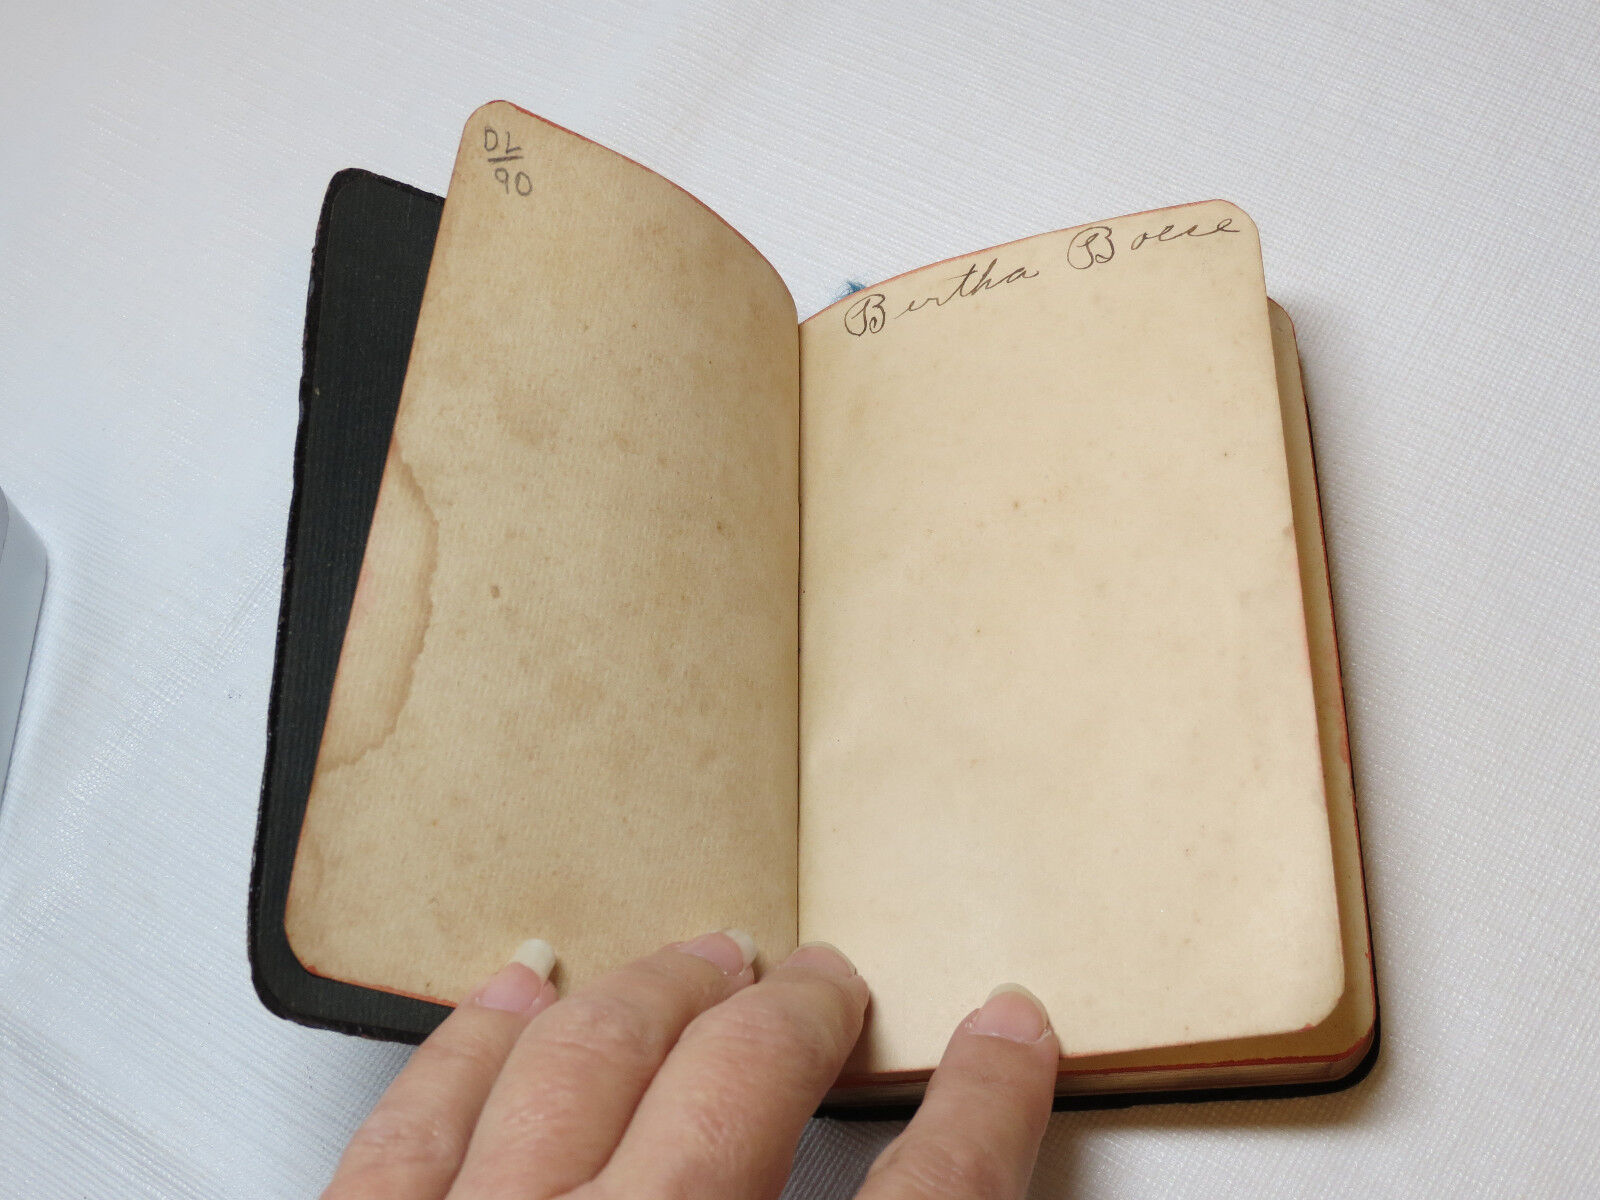 DL
90
Bertha Boese